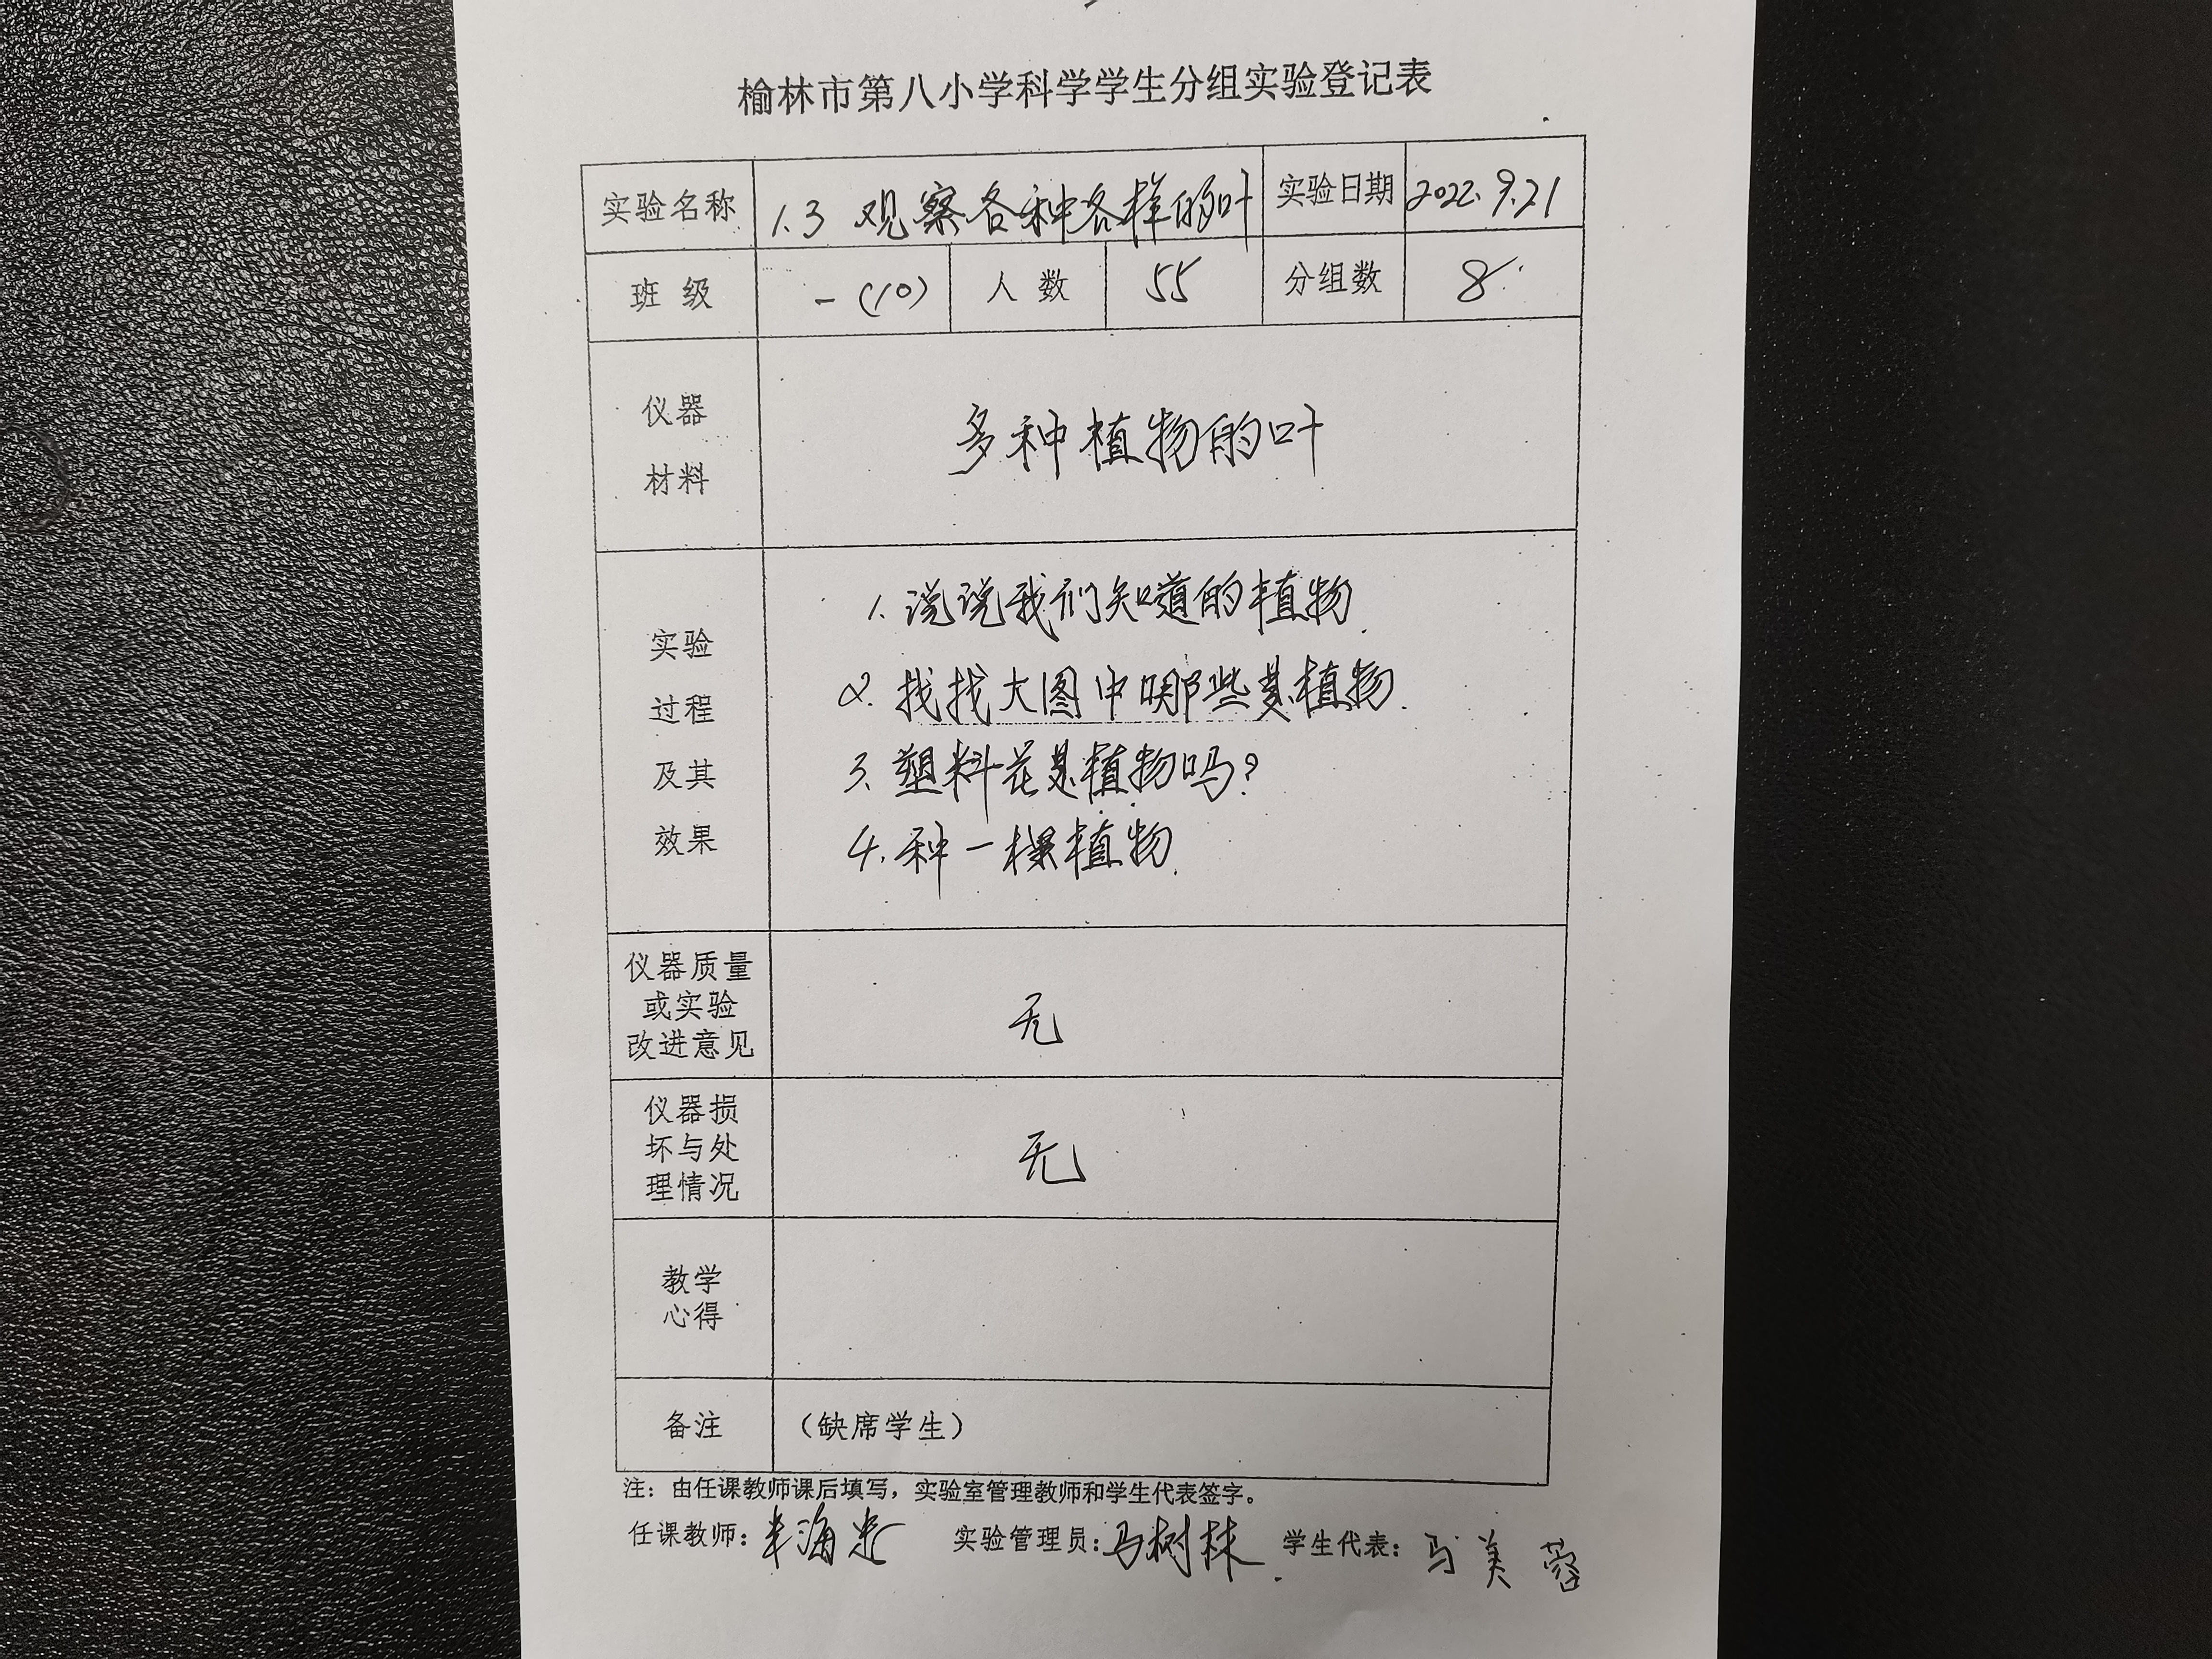 榆林市第八小学科学学生分组实验登记表
实验名称 1.3 观察各种各样的叶 实验日期 2022.9.21
班 级 一(10) 人 数 55 分组数 8
仪器
材料
多种植物的叶
实验
过程
及其
效果
1. 说说我们知道的植物.
2. 找找大图中哪些是植物.
3. 塑料花是植物吗?
4. 种一棵植物.
仪器质量
或实验
改进意见
无
仪器损
坏与处
理情况
无
教学
心得
备注 (缺席学生)
注: 由任课教师课后填写, 实验室管理教师和学生代表签字。
任课教师: 海 实验管理员: 马树林 学生代表: 马美蓉